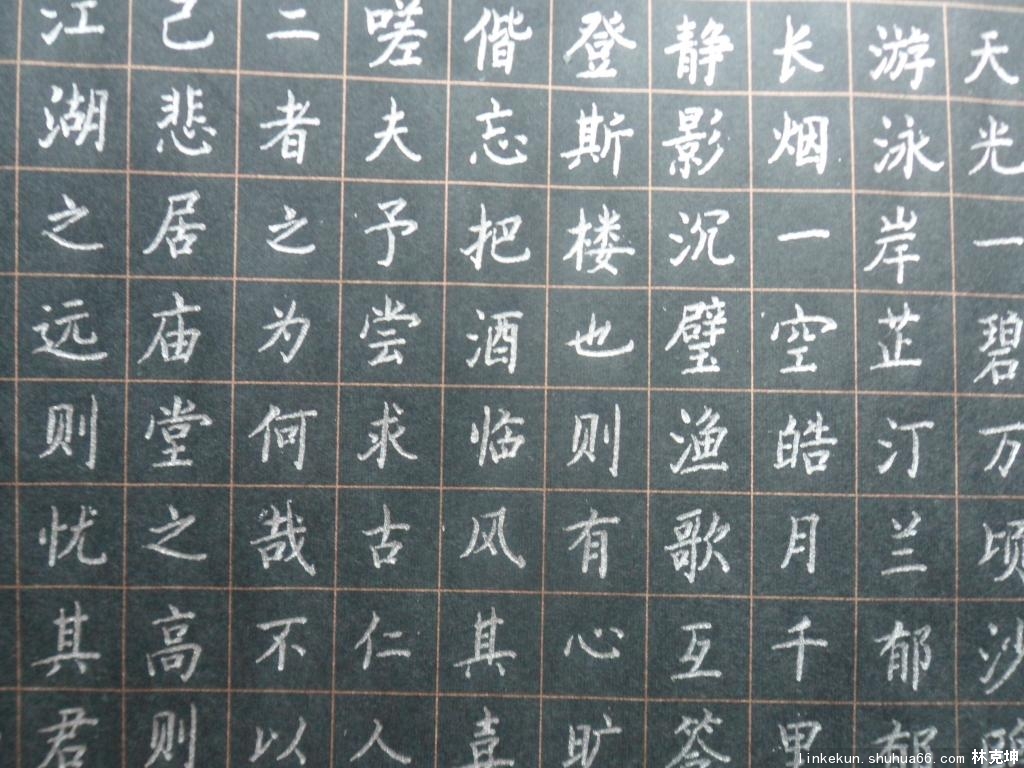 天光一碧万顷沙
游泳岸芷汀兰郁郁
长烟一空皓月千里
静影沉璧渔歌互答
登斯楼也则有心旷
偕忘把酒临风其喜
嗟夫予尝求古仁人
二者之为何哉不以
己悲居庙堂之高则
江湖之远则忧其君
linkekun.shuhua66.com 林克坤